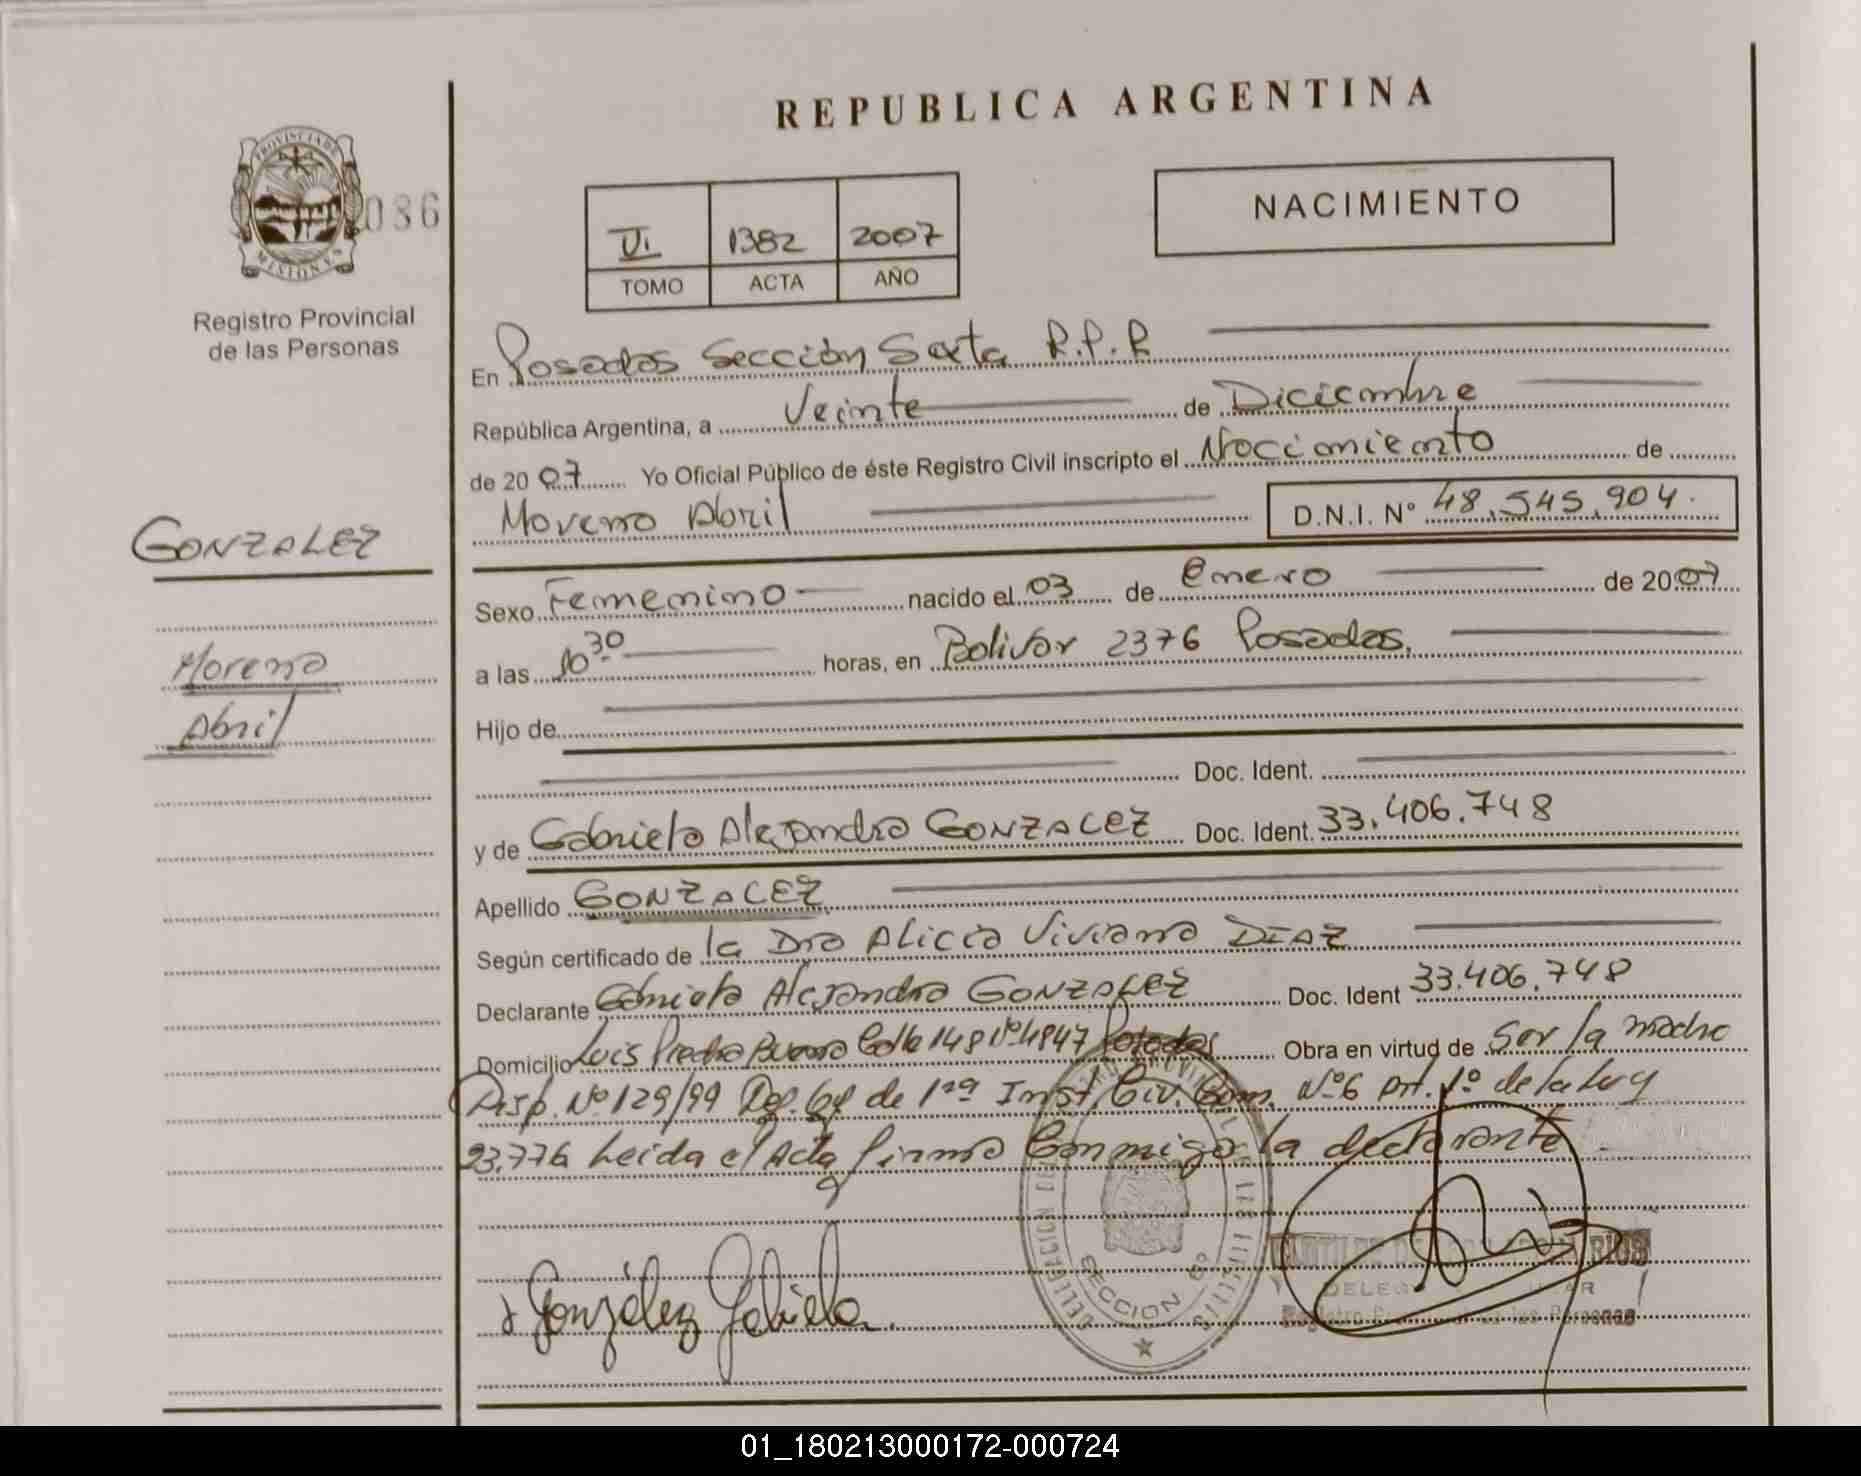 REPUBLICA ARGENTINA
PROVINCIA DE
MISIONES
086
Registro Provincial
de las Personas
VI 1382 2007
TOMO ACTA AÑO
NACIMIENTO
En Posadas Sección Sexta R.P.R
República Argentina, a Veinte de Diciembre
de 2007 Yo Oficial Público de éste Registro Civil inscripto el Nacimiento de
Morena Abril D.N.I. N° 48.545.904.
GONZALEZ
Morena
Abril
Sexo Femenino nacido el 03 de Enero de 2007
a las 10 30 horas, en Bolivar 2376 Posadas.
Hijo de
Doc. Ident.
y de Gabriela Alejandra GONZALEZ Doc. Ident. 33.406.748
Apellido GONZALEZ
Según certificado de la Dra Alicia Viviana DIAZ
Declarante Gabriela Alejandra GONZALEZ Doc. Ident 33.406.748
Domicilio Luis Piedra Buena Calle 148 N° 4847 Posadas Obra en virtud de Ser la madre
Disp. N° 129/99 de 1ra Inst. Civ. Com. N° 6 Art. 1° de la Ley
23.776 Leida el Acta firma Conmigo la declarante
González Gabriela.
SECCION 6°
Registro de las Personas
01_180213000172-000724